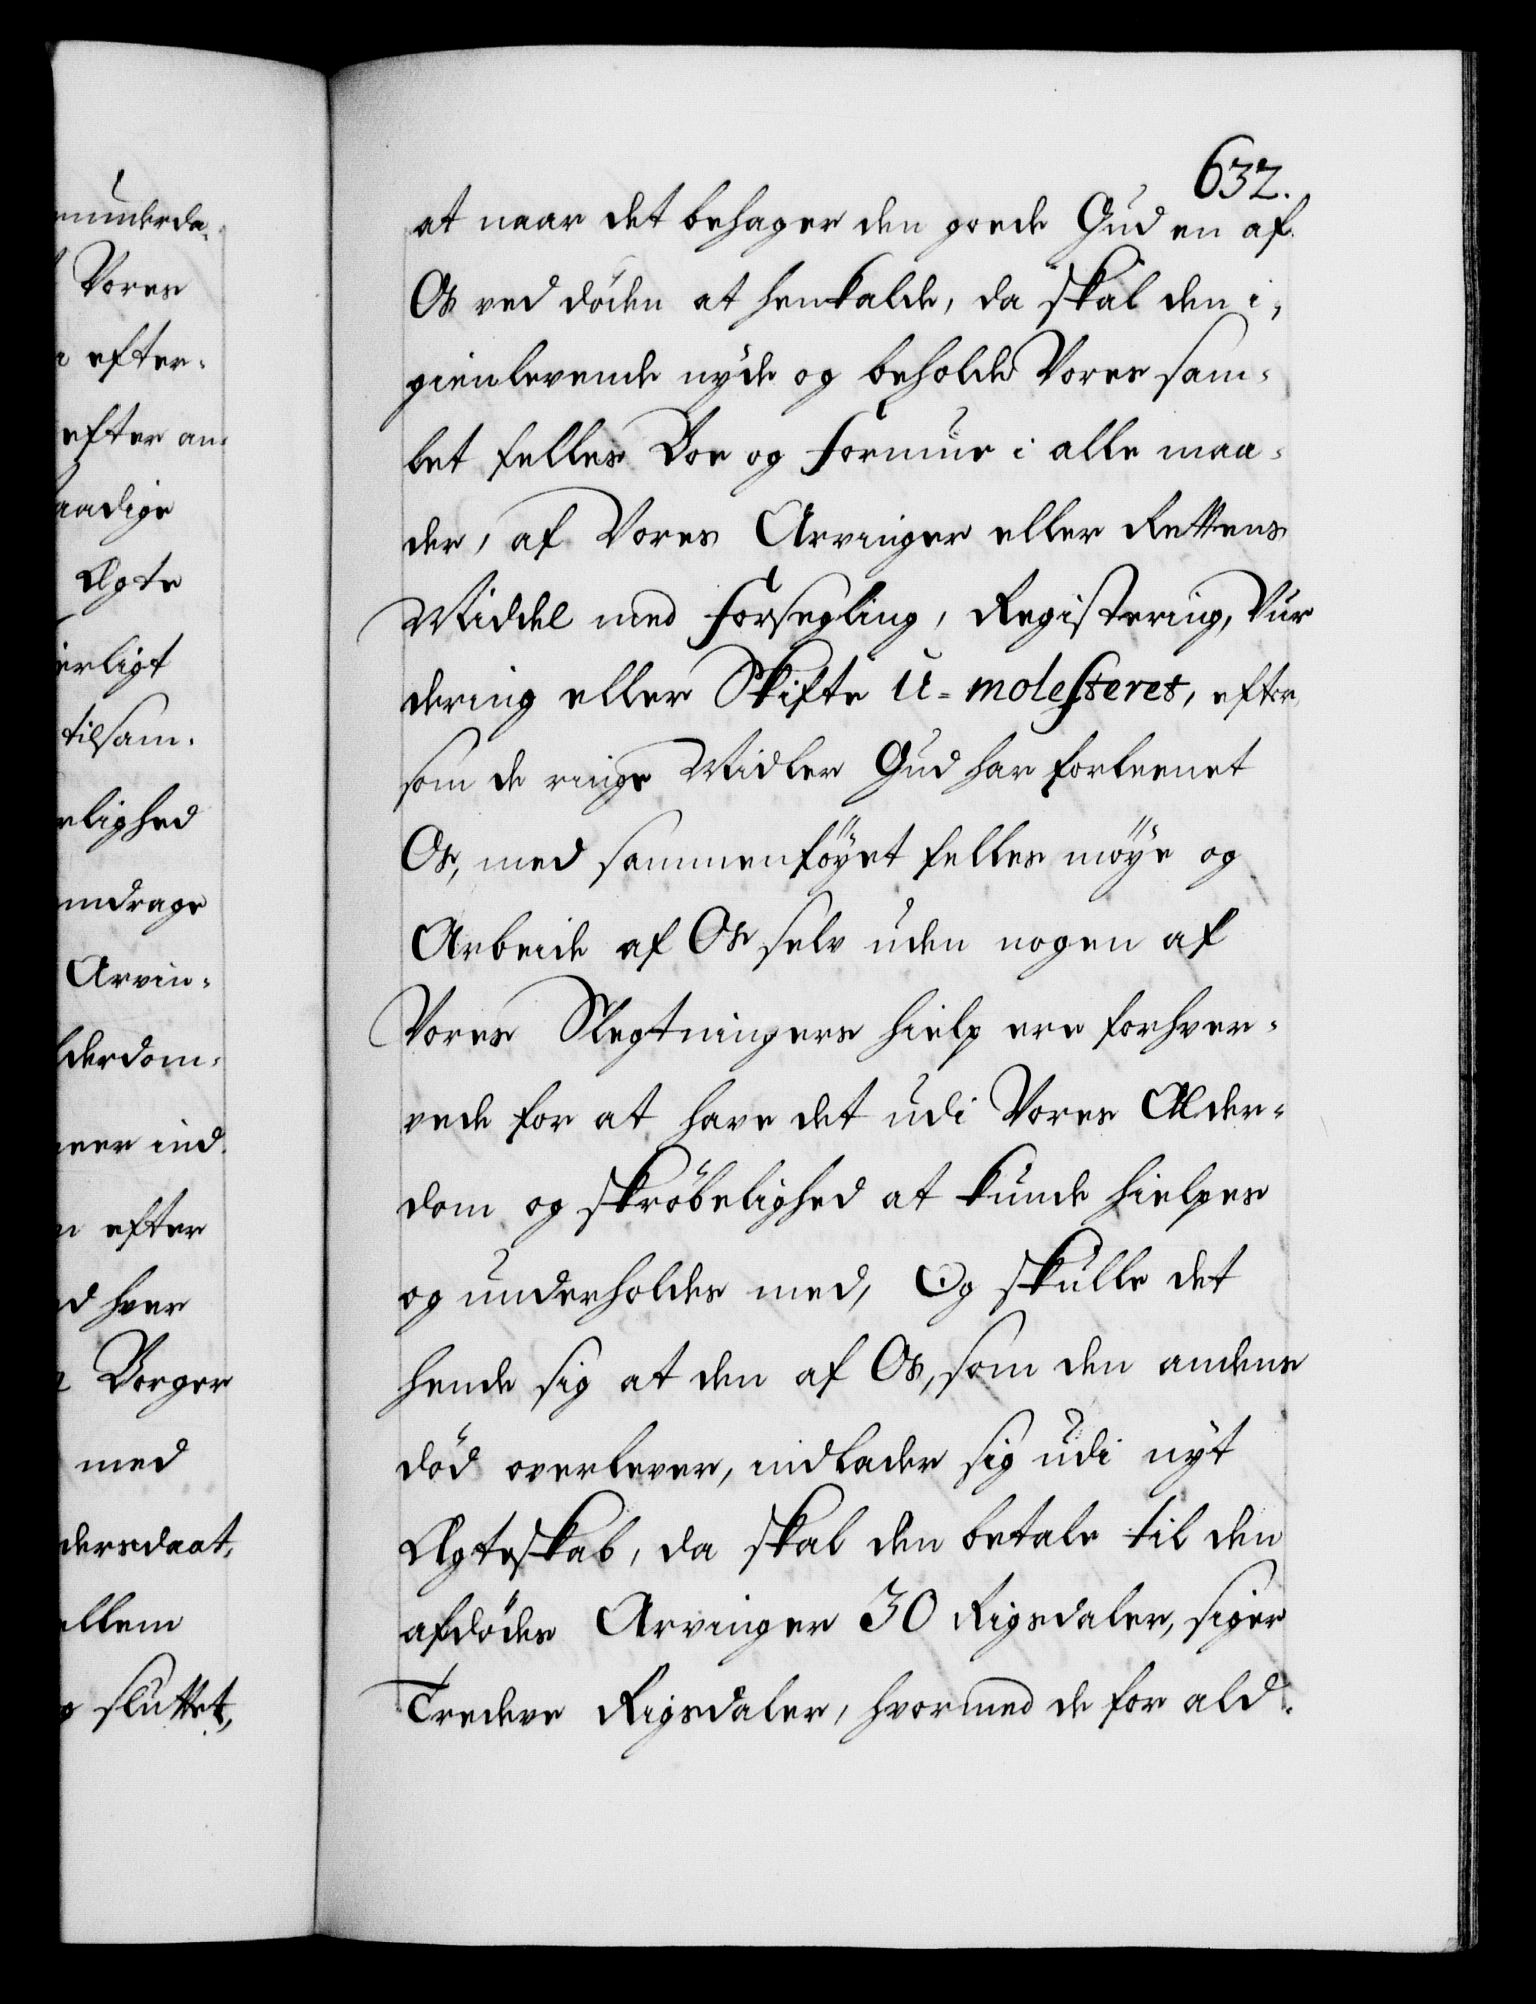 632.
at naar det behager den goede Gud en af
Os ved döden at henkalde, da skal den i,
gienlevende nyde og beholde Vores sam-
let felles Boe og Formue i alle maa-
der, af Vores Arvinger eller Rettens
Middel med Forsegling, Registering, Vur
dering eller Skifte U-molesteret, efter
som de ringe Midler Gud har forleenet
Os, med sammenföyet felles möye og
Arbeide af Os selv uden nogen af
Vores Slegtningers hielp ere forhver-
vede for at have det udi Vores Alder-
dom og skröbelighed at kunde hielpes
og underholdes med, Og skulle det
hende sig at den af Os, som den andens
död overlever, indlader sig udi nyt
Ægteskab, da skal den betale til den
afdödes Arvinger 30 Rigsdaler, siger
Tredeve Rigsdaler, hvormed de for ald-
Vores
efter-
efter an-
aadige
Ægte
ierligt
tilsam-
elighed
mdrage
Arvin-
lderdom-
meer ind
efter
hver
Borger
med
dersdaat,
ellem
sluttet,